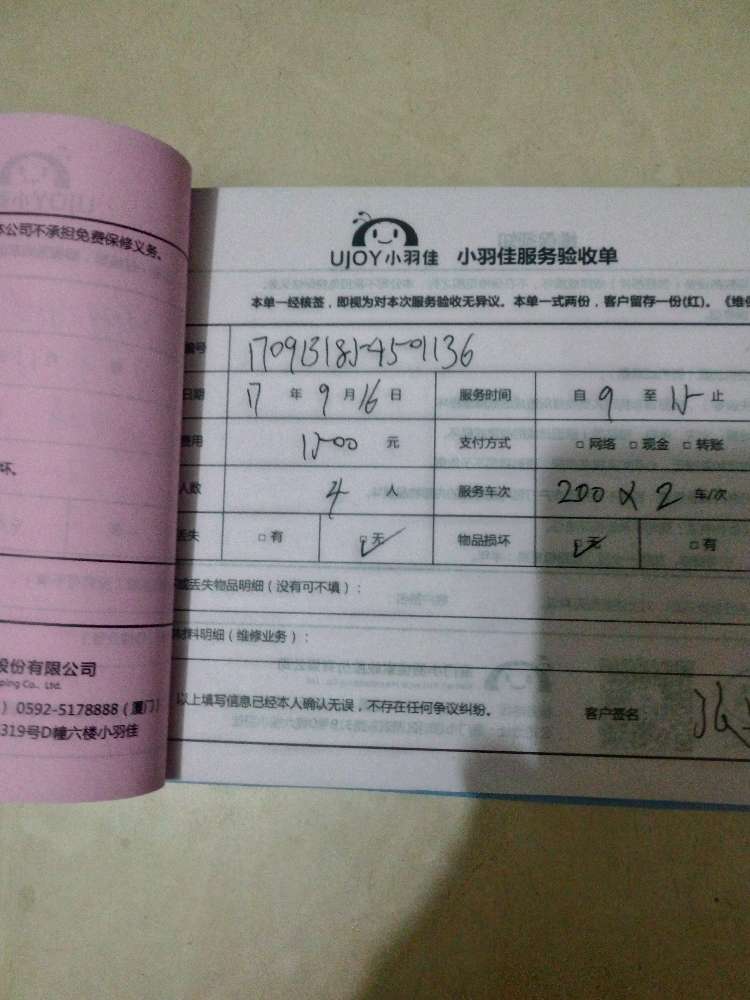 本公司不承担免费保修义务。
坏。
股份有限公司
ping Co., Ltd.
) 0592-5178888 (厦门)
319号D幢六楼小羽佳
UJOY小羽佳 小羽佳服务验收单
本单一经核签，即视为对本次服务验收无异议。本单一式两份，客户留存一份(红)。《维修
编号 1709131854501136
日期 17 年 9 月 16 日 服务时间 自 9 至 15 止
费用 1500 元 支付方式 □ 网络 □ 现金 □ 转账
人数 4 人 服务车次 200 × 2 车/次
丢失 □ 有 □ 无 物品损坏 □ 无 □ 有
或丢失物品明细（没有可不填）：
材料明细（维修业务）：
以上填写信息已经本人确认无误，不存在任何争议纠纷。 客户签名